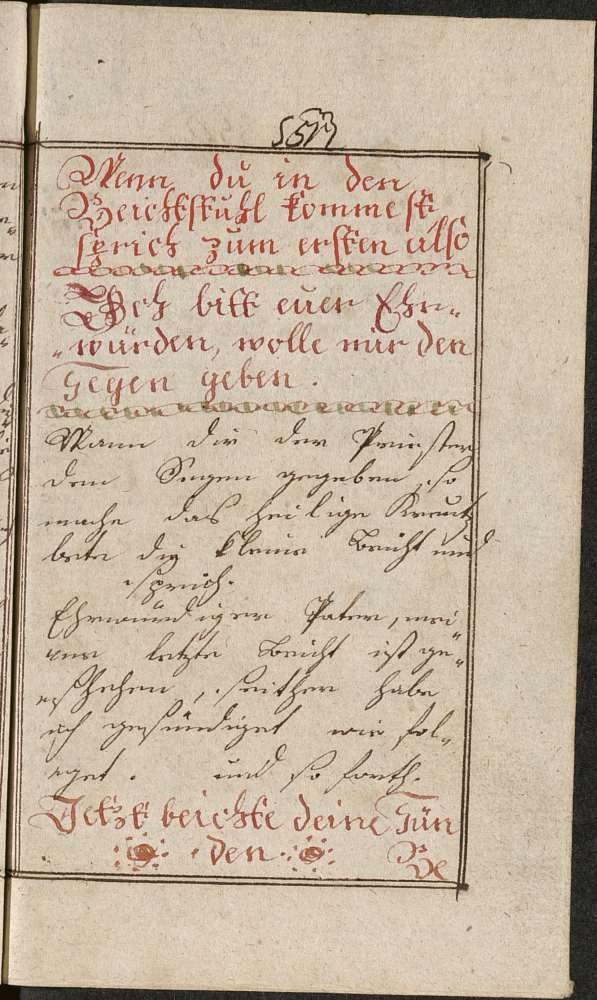 Wenn du in den
Beichtstuhl kommest
sprich zum ersten also
Ich bitt euer Ehr=
=würden, wolle mir den
Segen geben.
Wann dir der Priester
dem Segen gegeben, so
mache das heilige Kreutz
bete die kleine Beicht und
sprich.
Ehrwürdiger Pater, mei
ne letzte Beicht ist ge=
=schehen, seither habe
ich gesündiget wie fol=
=get. und so forth.
Jetzt beichte deine Sün
den.
Be